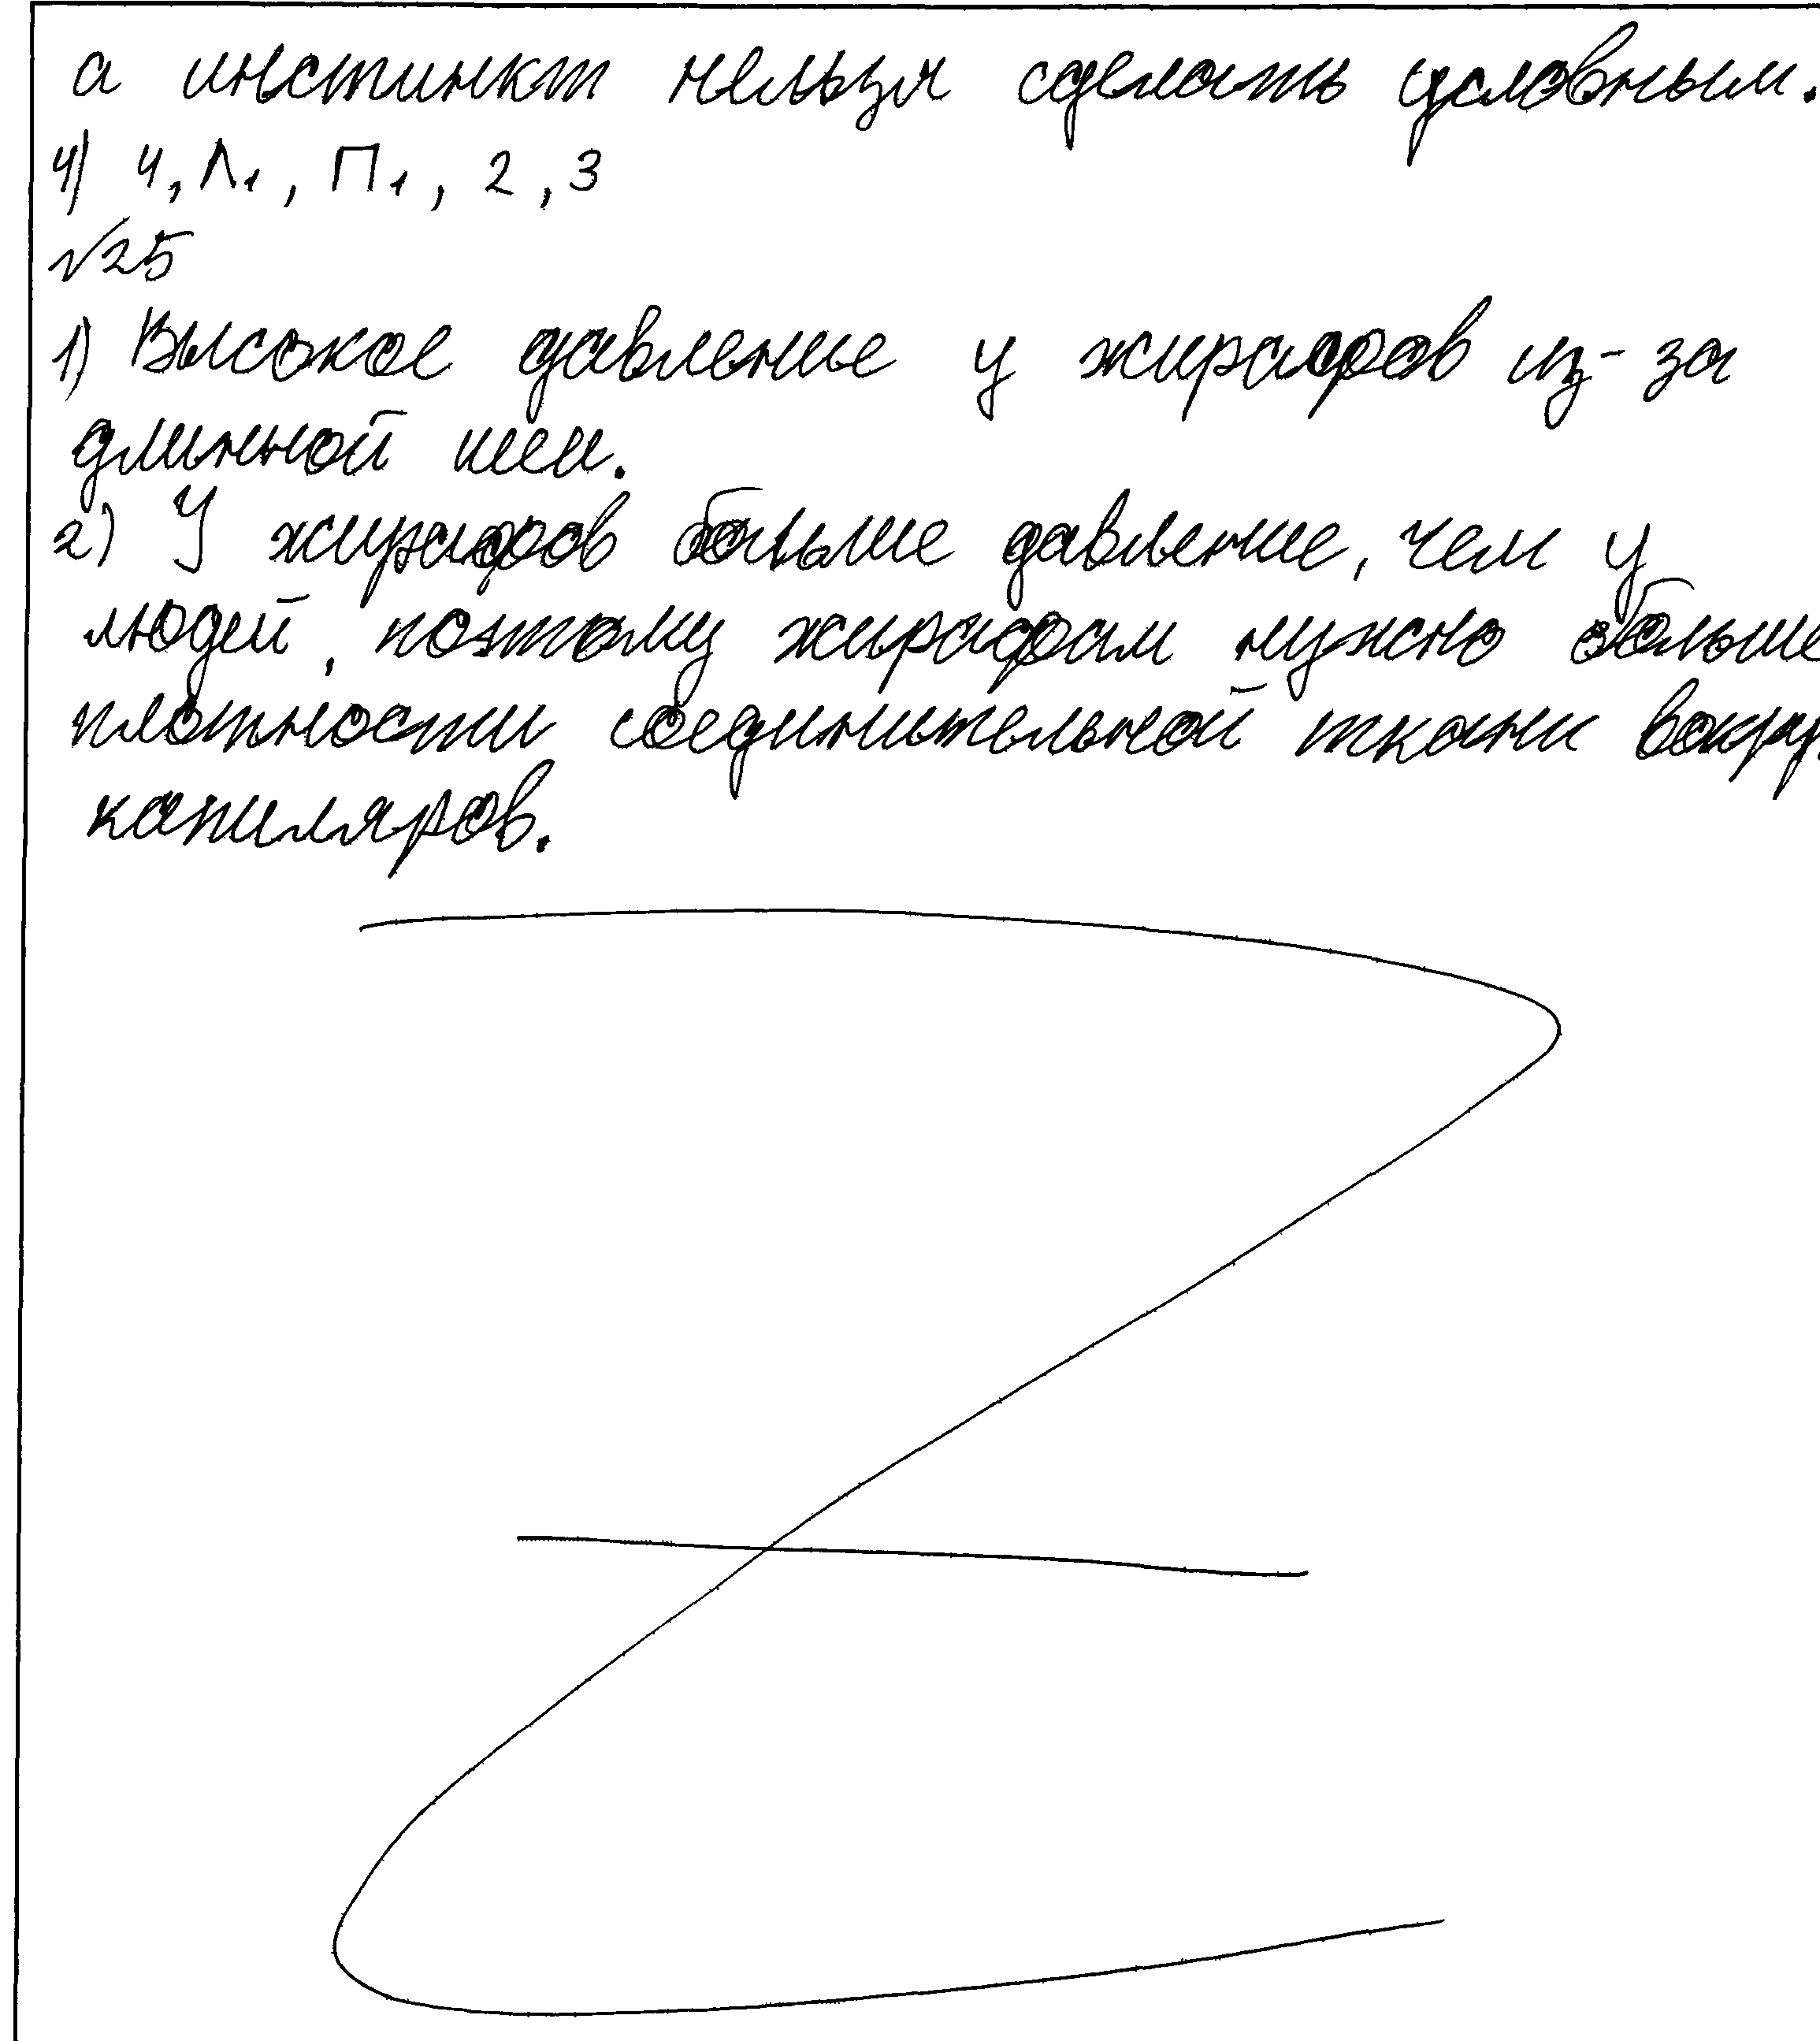 а инстинкт нельзя сделать условным.
4) 4, Л1, П1, 2, 3
√25
1) Высокое давление у жирафов из-за
длинной шеи.
2) У жирафов больше давление, чем у
людей, поэтому жирафам нужно больше
плотности соединительной ткани вокруг
капиляров.